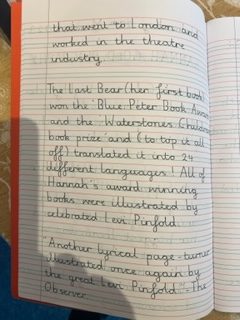 that went to London and
worked in the theatre
industry.
The Last Bear (her first book)
won the 'Blue Peter Book Award
and the 'Waterstones Children
book prize' and (to top it all
off) translated it into 24
different languages! All of
Hannah's award winning
books were illustrated by
celebrated Levi Pinfold.
Another lyrical page-turner
illustrated once again by
the great Levi Pinfold" - The
Observer